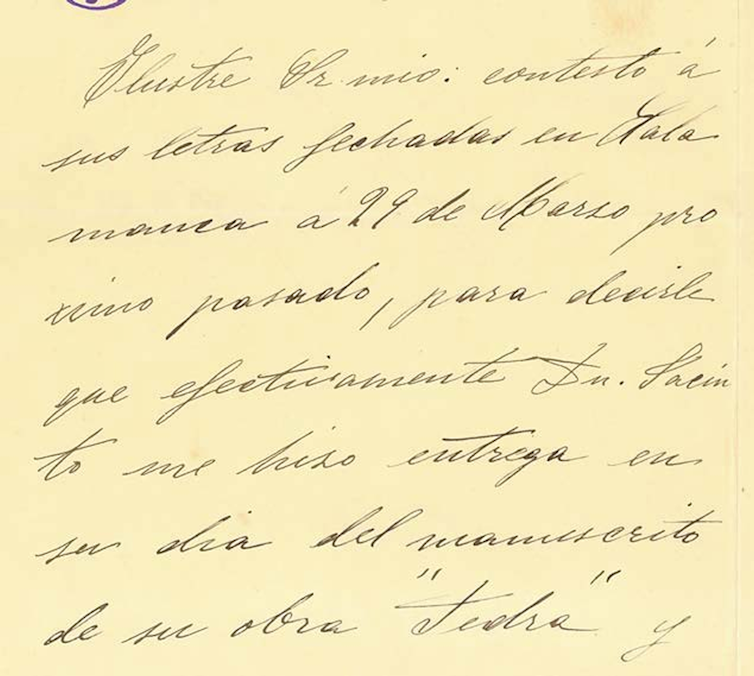 Ilustre Sr mio: contesto á
sus letras fechadas en Sala
manca á 29 de Marzo pro
ximo pasado, para decirle
que efectivamente Dn. Jacin
to me hizo entrega en
su dia del manuscrito
de su obra "Fedra" y